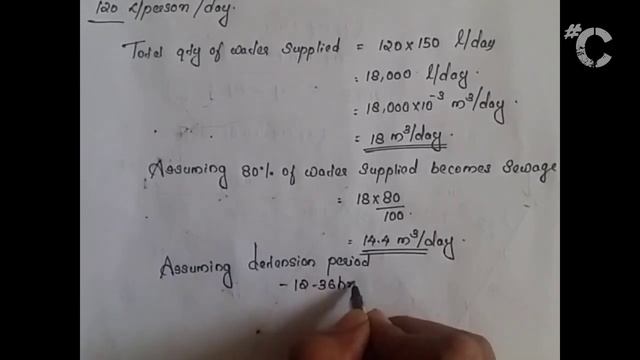 120 l/person/day.
Total qty of water supplied = 120 x 150 l/day
= 18,000 l/day.
= 18,000x10⁻³ m³/day.
= 18 m³/day.
Assuming 80% of water supplied becomes sewage
= 18 x 80
100.
= 14.4 m³/day.
Assuming detension period
- 12-36hr
#C